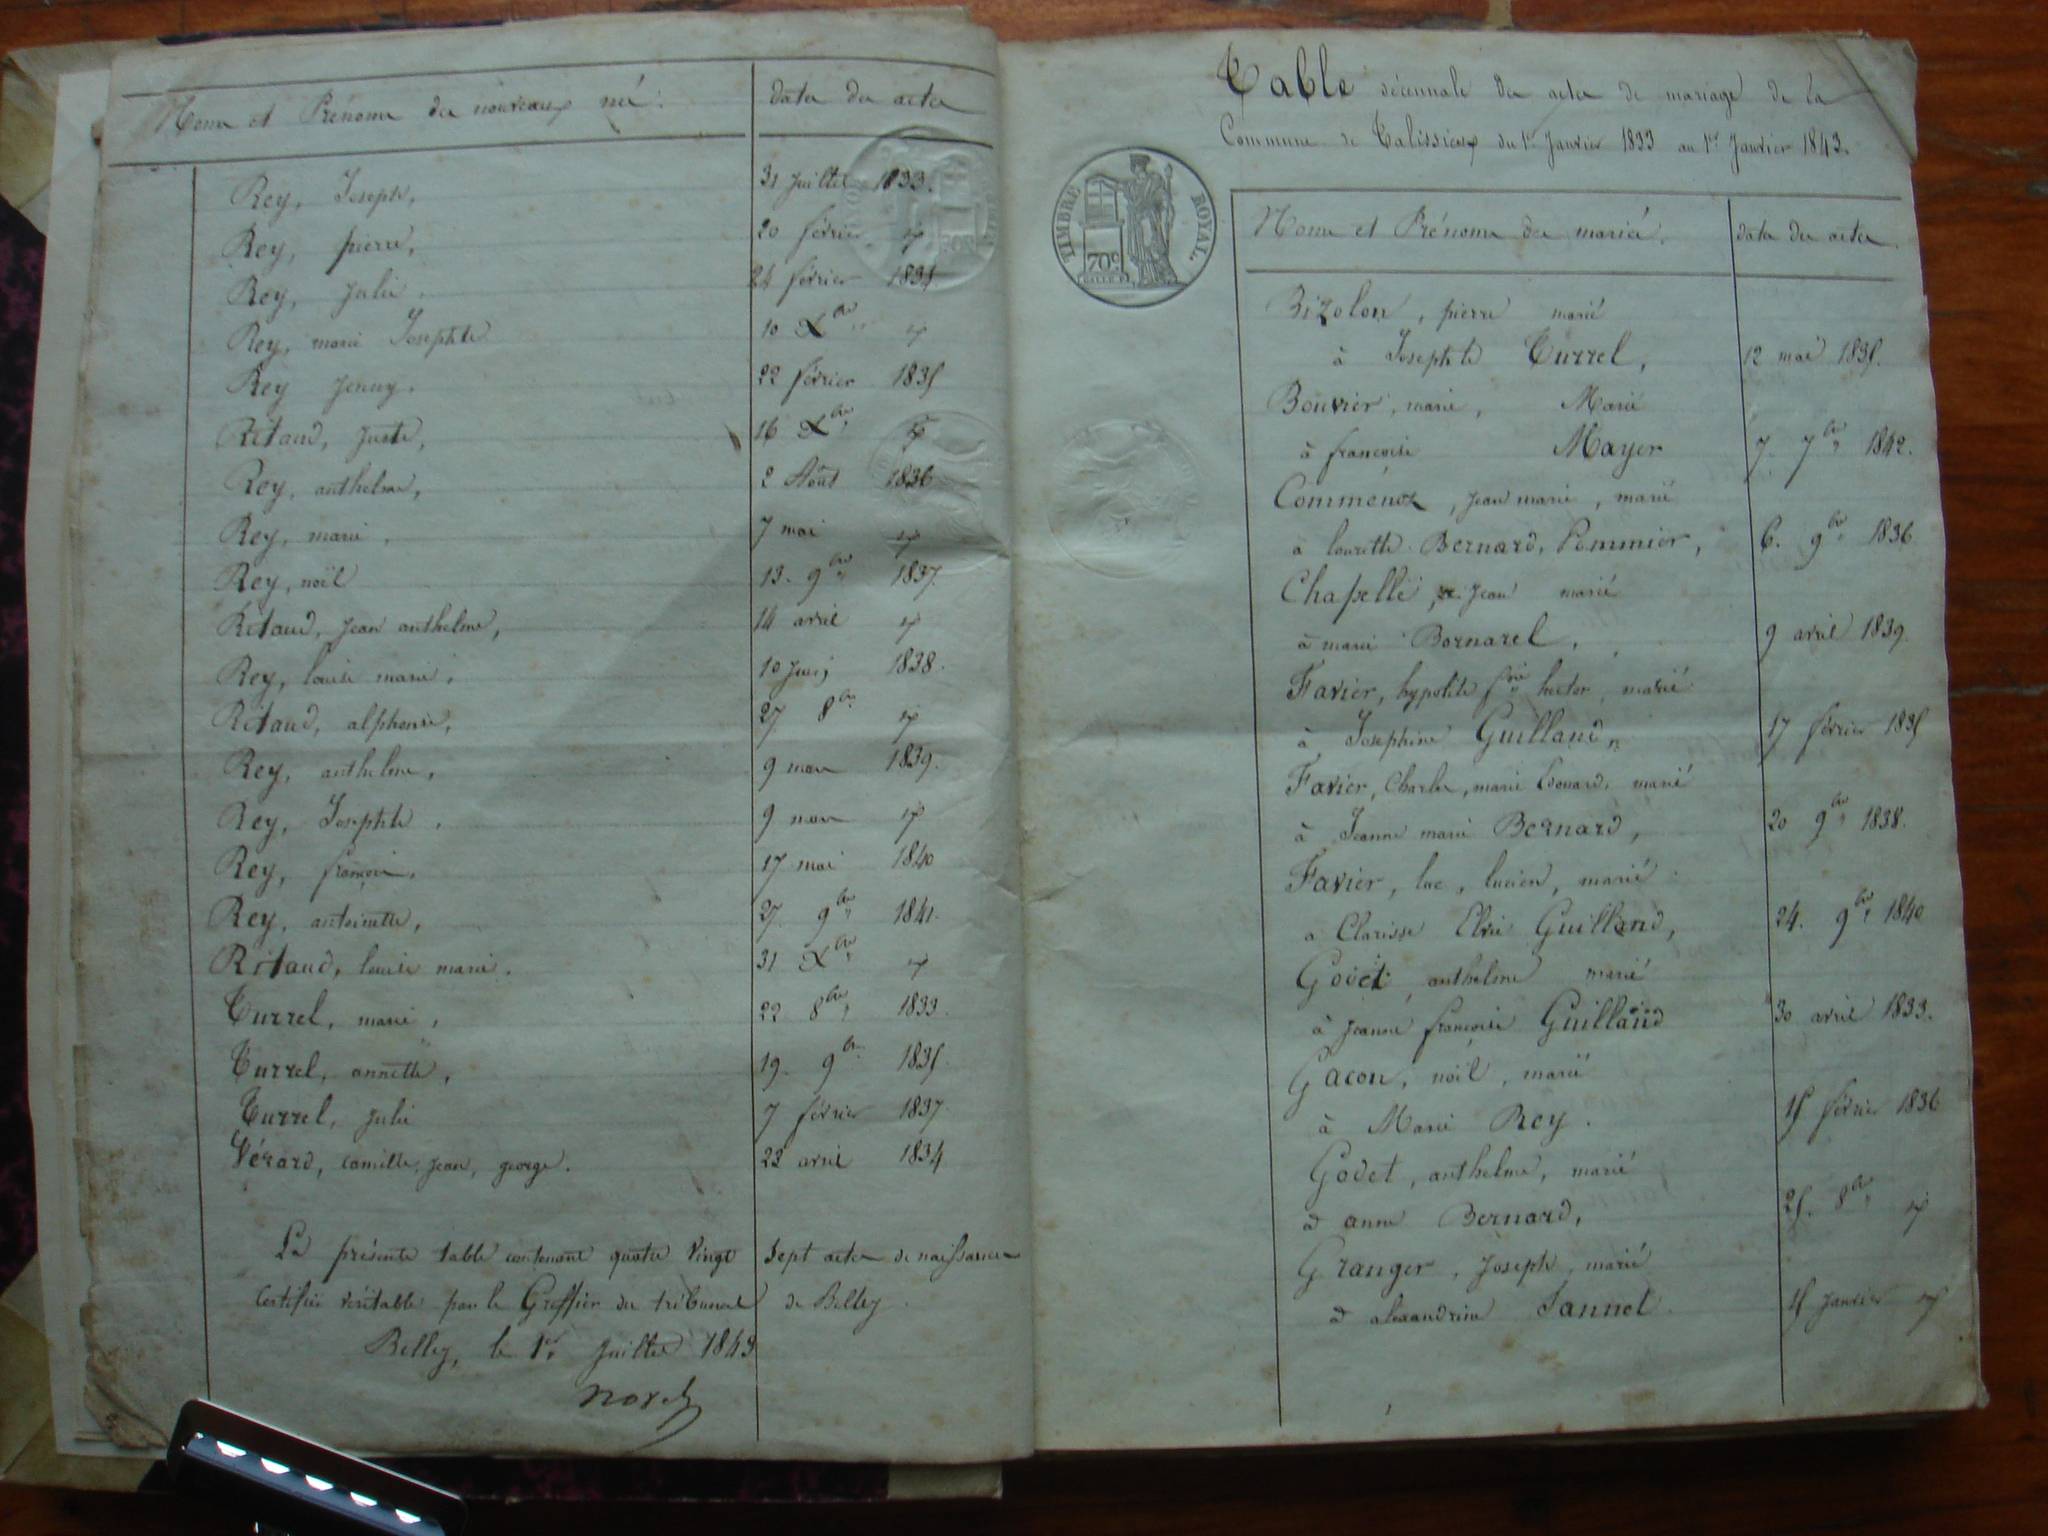 Noms et Prénoms des nouveaux nés. Dates des actes
Rey, Joseph, 31 juillet 1833.
Rey, pierre, 20 février id
Rey, Julie. 24 février 1834
Rey, marie Josephte 10 Xbre id
Rey Jenny. 22 février 1835
Ritaud, Juste, 16 Xbre id
Rey, anthelme, 2 Août 1836
Rey, marie, 7 mai id
Rey, noël 13. 9bre 1837.
Ritaud, Jean anthelme, 14 avril id
Rey, louise marie, 10 Juin 1838.
Ritaud, alphonse, 27. 8bre id
Rey, anthelme, 9 mars 1839.
Rey, Josephte, 9 mars id
Rey, françois, 17 mai 1840
Rey, antoinette, 27. 9bre 1841.
Ritaud, louise marie. 31 Xbre id
Turrel, marie, 22 8bre 1833.
Turrel, annette, 19. 9bre 1835.
Turrel, Julie 7 février 1837.
Vérard, camille, Jean, george. 23 avril 1834
La présente table contenant quatre vingt sept actes de naissances
certifiée véritable par le Greffier du tribunal de Belley.
Belley, le 1er Juillet 1843
Table décennale des actes de mariage de la
Commune de Talissieux du 1er Janvier 1833 au 1er Janvier 1843.
TIMBRE ROYAL.
70c
Noms et Prénoms des mariés. Dates des actes.
Bizolon, pierre marié
à Josephte Turrel, 12 mai 1835.
Bouvier, marie, Marié
à francoise Mayer 7. 7bre 1842.
Comménoz, Jean marie, marié
à Bernard, Pommier, 6. 9bre 1836
Chapelle, Jean marié
à marie Bornarel, 9 avril 1839.
Favier, hypolite hector, marié
à Josephine Guilland, 17 février 1835
Favier, Charles, marie Edouard, marié
à Jeanne marie Bernard, 20 9bre 1838.
Favier, luc, lucien, marié
à Clarisse Elvie Guilland, 24. 9bre 1840
Godet, anthelme marié
à Jeanne françoise Guilland 30 avril 1833.
Gacon, noël, marié
à Marie Rey. 15 février 1836
Godet, anthelme, marié
à anne Bernard, 25. 8bre id
Granger, Joseph, marié
à alexandrine Jannet. 15 Janvier id